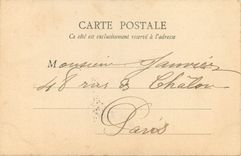 CARTE POSTALE
Ce côté est exclusivement réservé à l'adresse
Monsieur Janvier
48 rue de Châlon
Paris